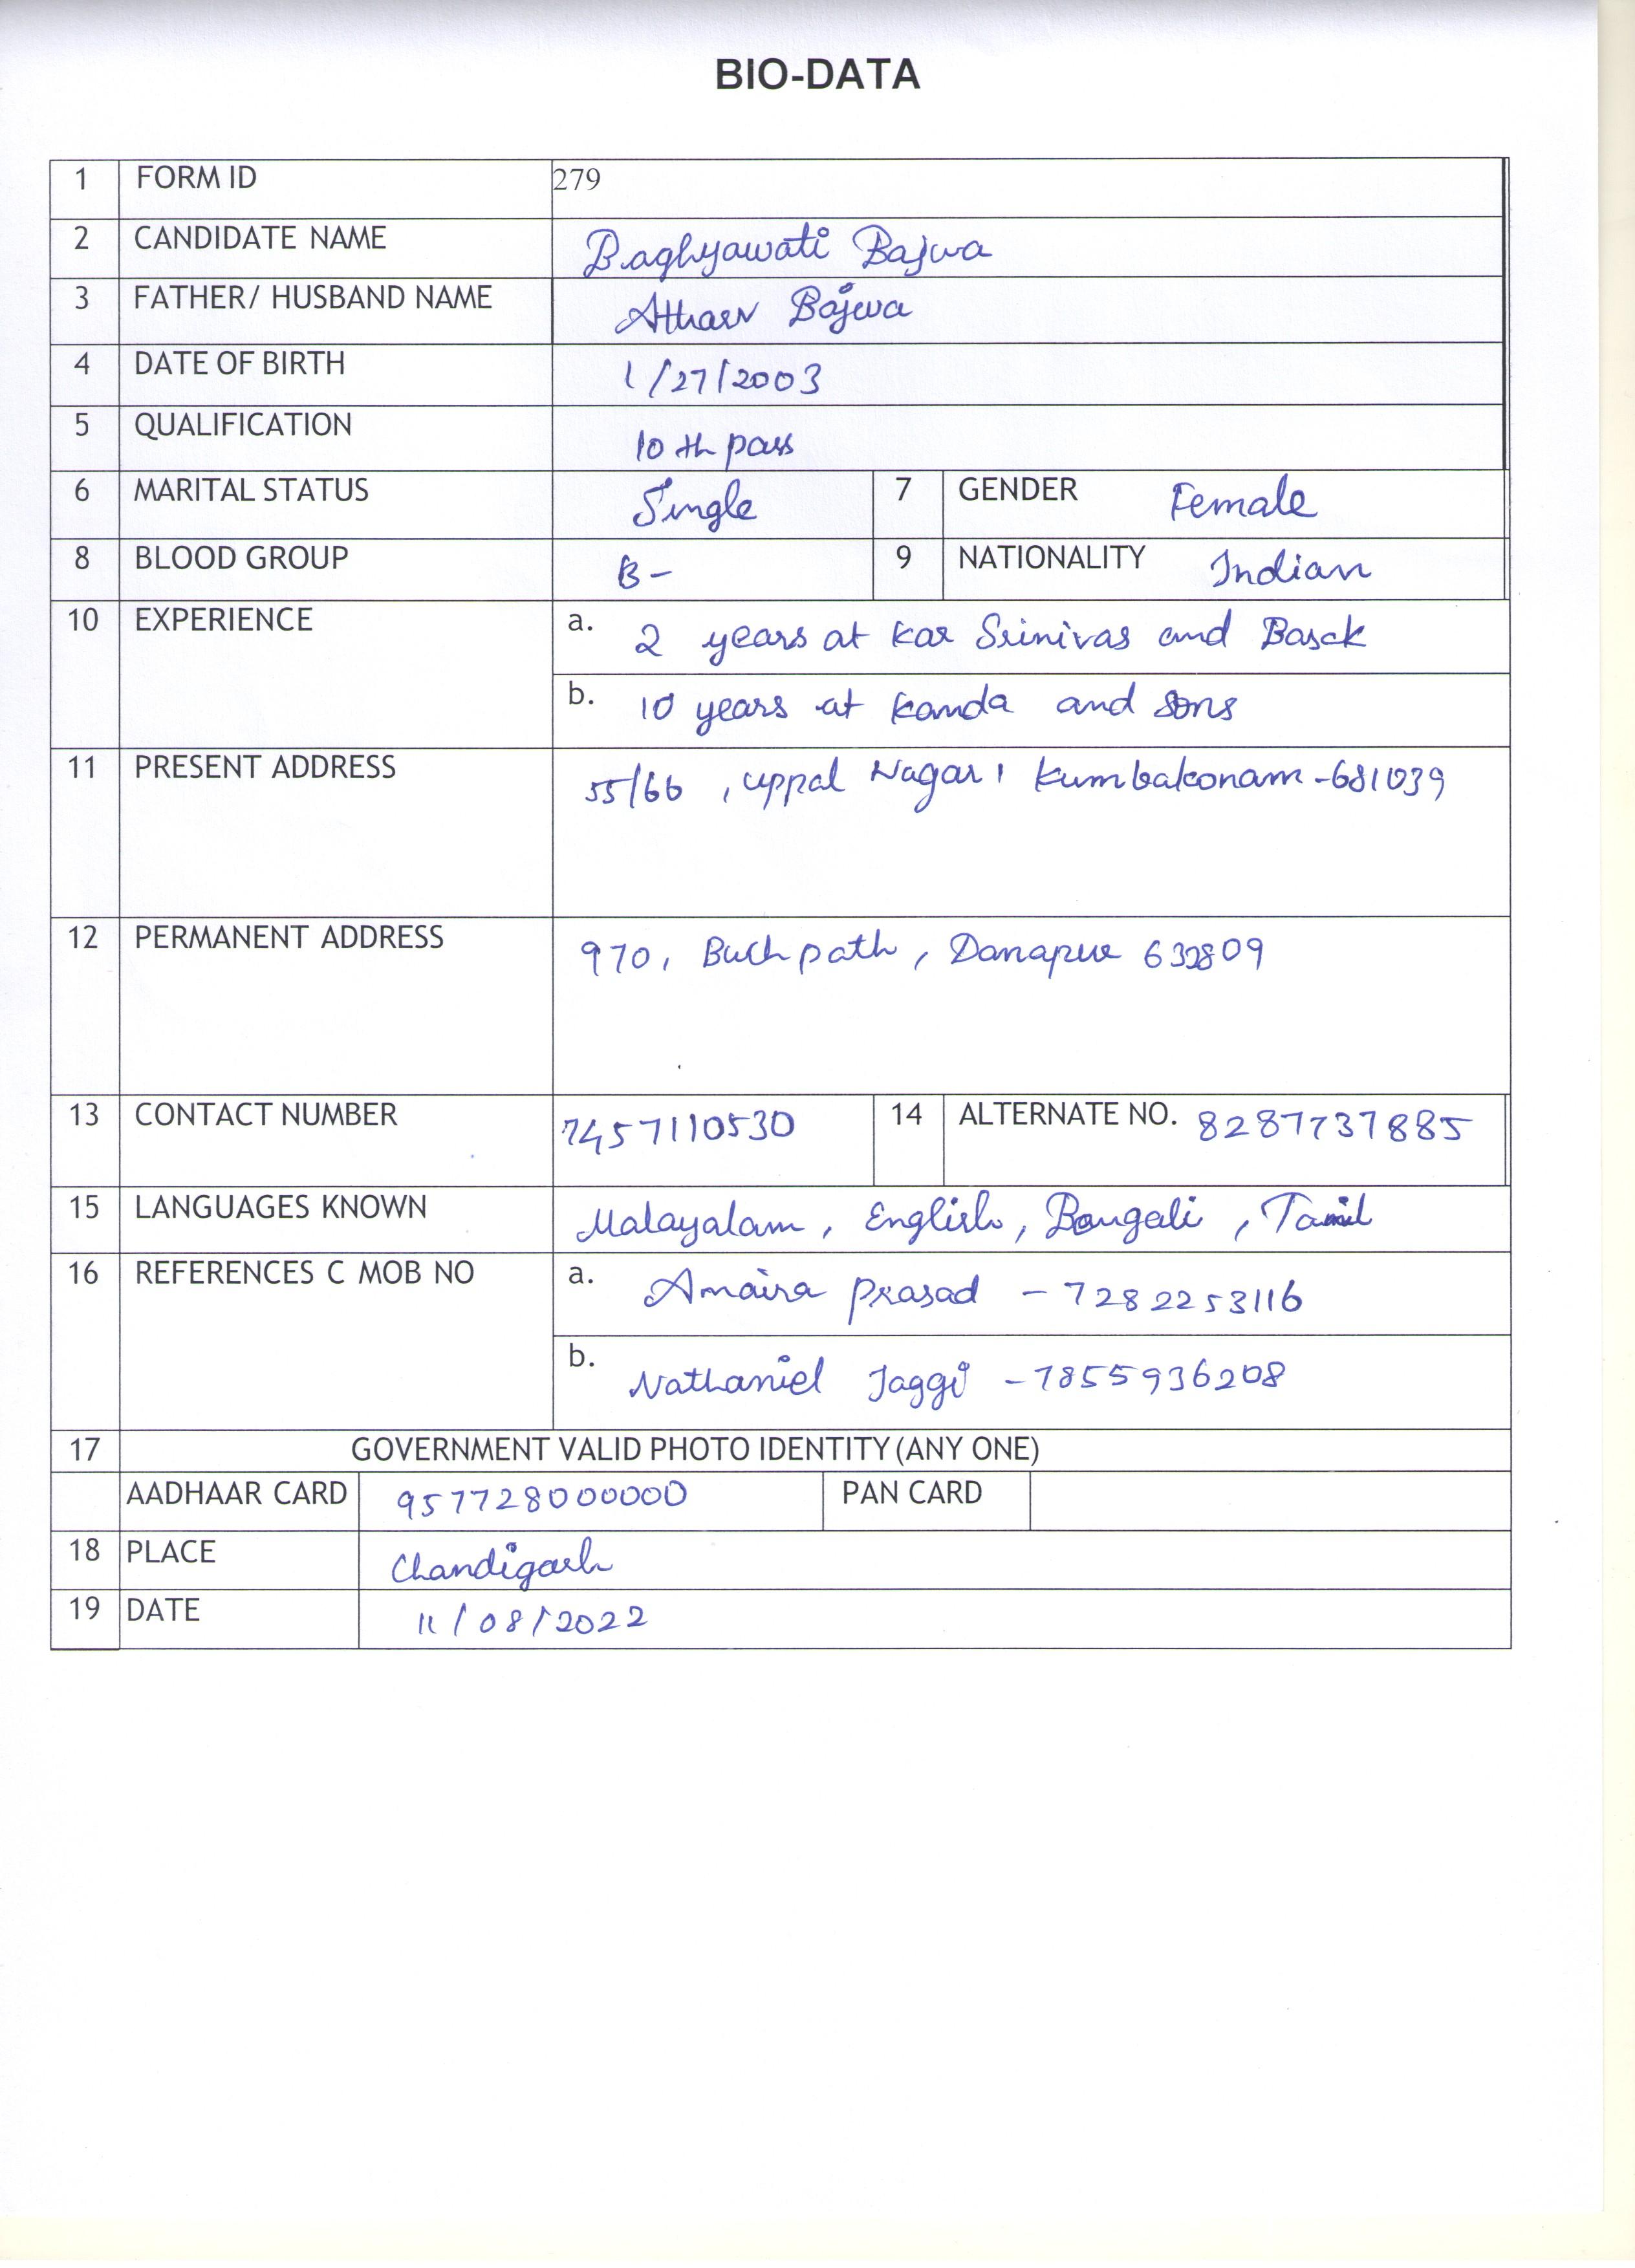 BIO-DATA
1 FORM ID 279
2 CANDIDATE NAME Baghyawati Bajwa
3 FATHER/ HUSBAND NAME Atharv Bajwa
4 DATE OF BIRTH 1/27/2003
5 QUALIFICATION 10th pass
6 MARITAL STATUS Single 7 GENDER Female
8 BLOOD GROUP B- 9 NATIONALITY Indian
10 EXPERIENCE a. 2 years at Kar Srinivas and Basak
b. 10 years at Kanda and Sons
11 PRESENT ADDRESS 55/66, Uppal Nagar, Kumbakonam-681039
12 PERMANENT ADDRESS 970, Buch path, Danapur 632809
13 CONTACT NUMBER 7457110530 14 ALTERNATE NO. 8287737885
15 LANGUAGES KNOWN Malayalam, English, Bengali, Tamil
16 REFERENCES C MOB NO a. Amaira Prasad - 7282253116
b. Nathaniel Jaggi - 7855936208
17 GOVERNMENT VALID PHOTO IDENTITY (ANY ONE)
AADHAAR CARD 957728000000 PAN CARD
18 PLACE Chandigarh
19 DATE 11/08/2022